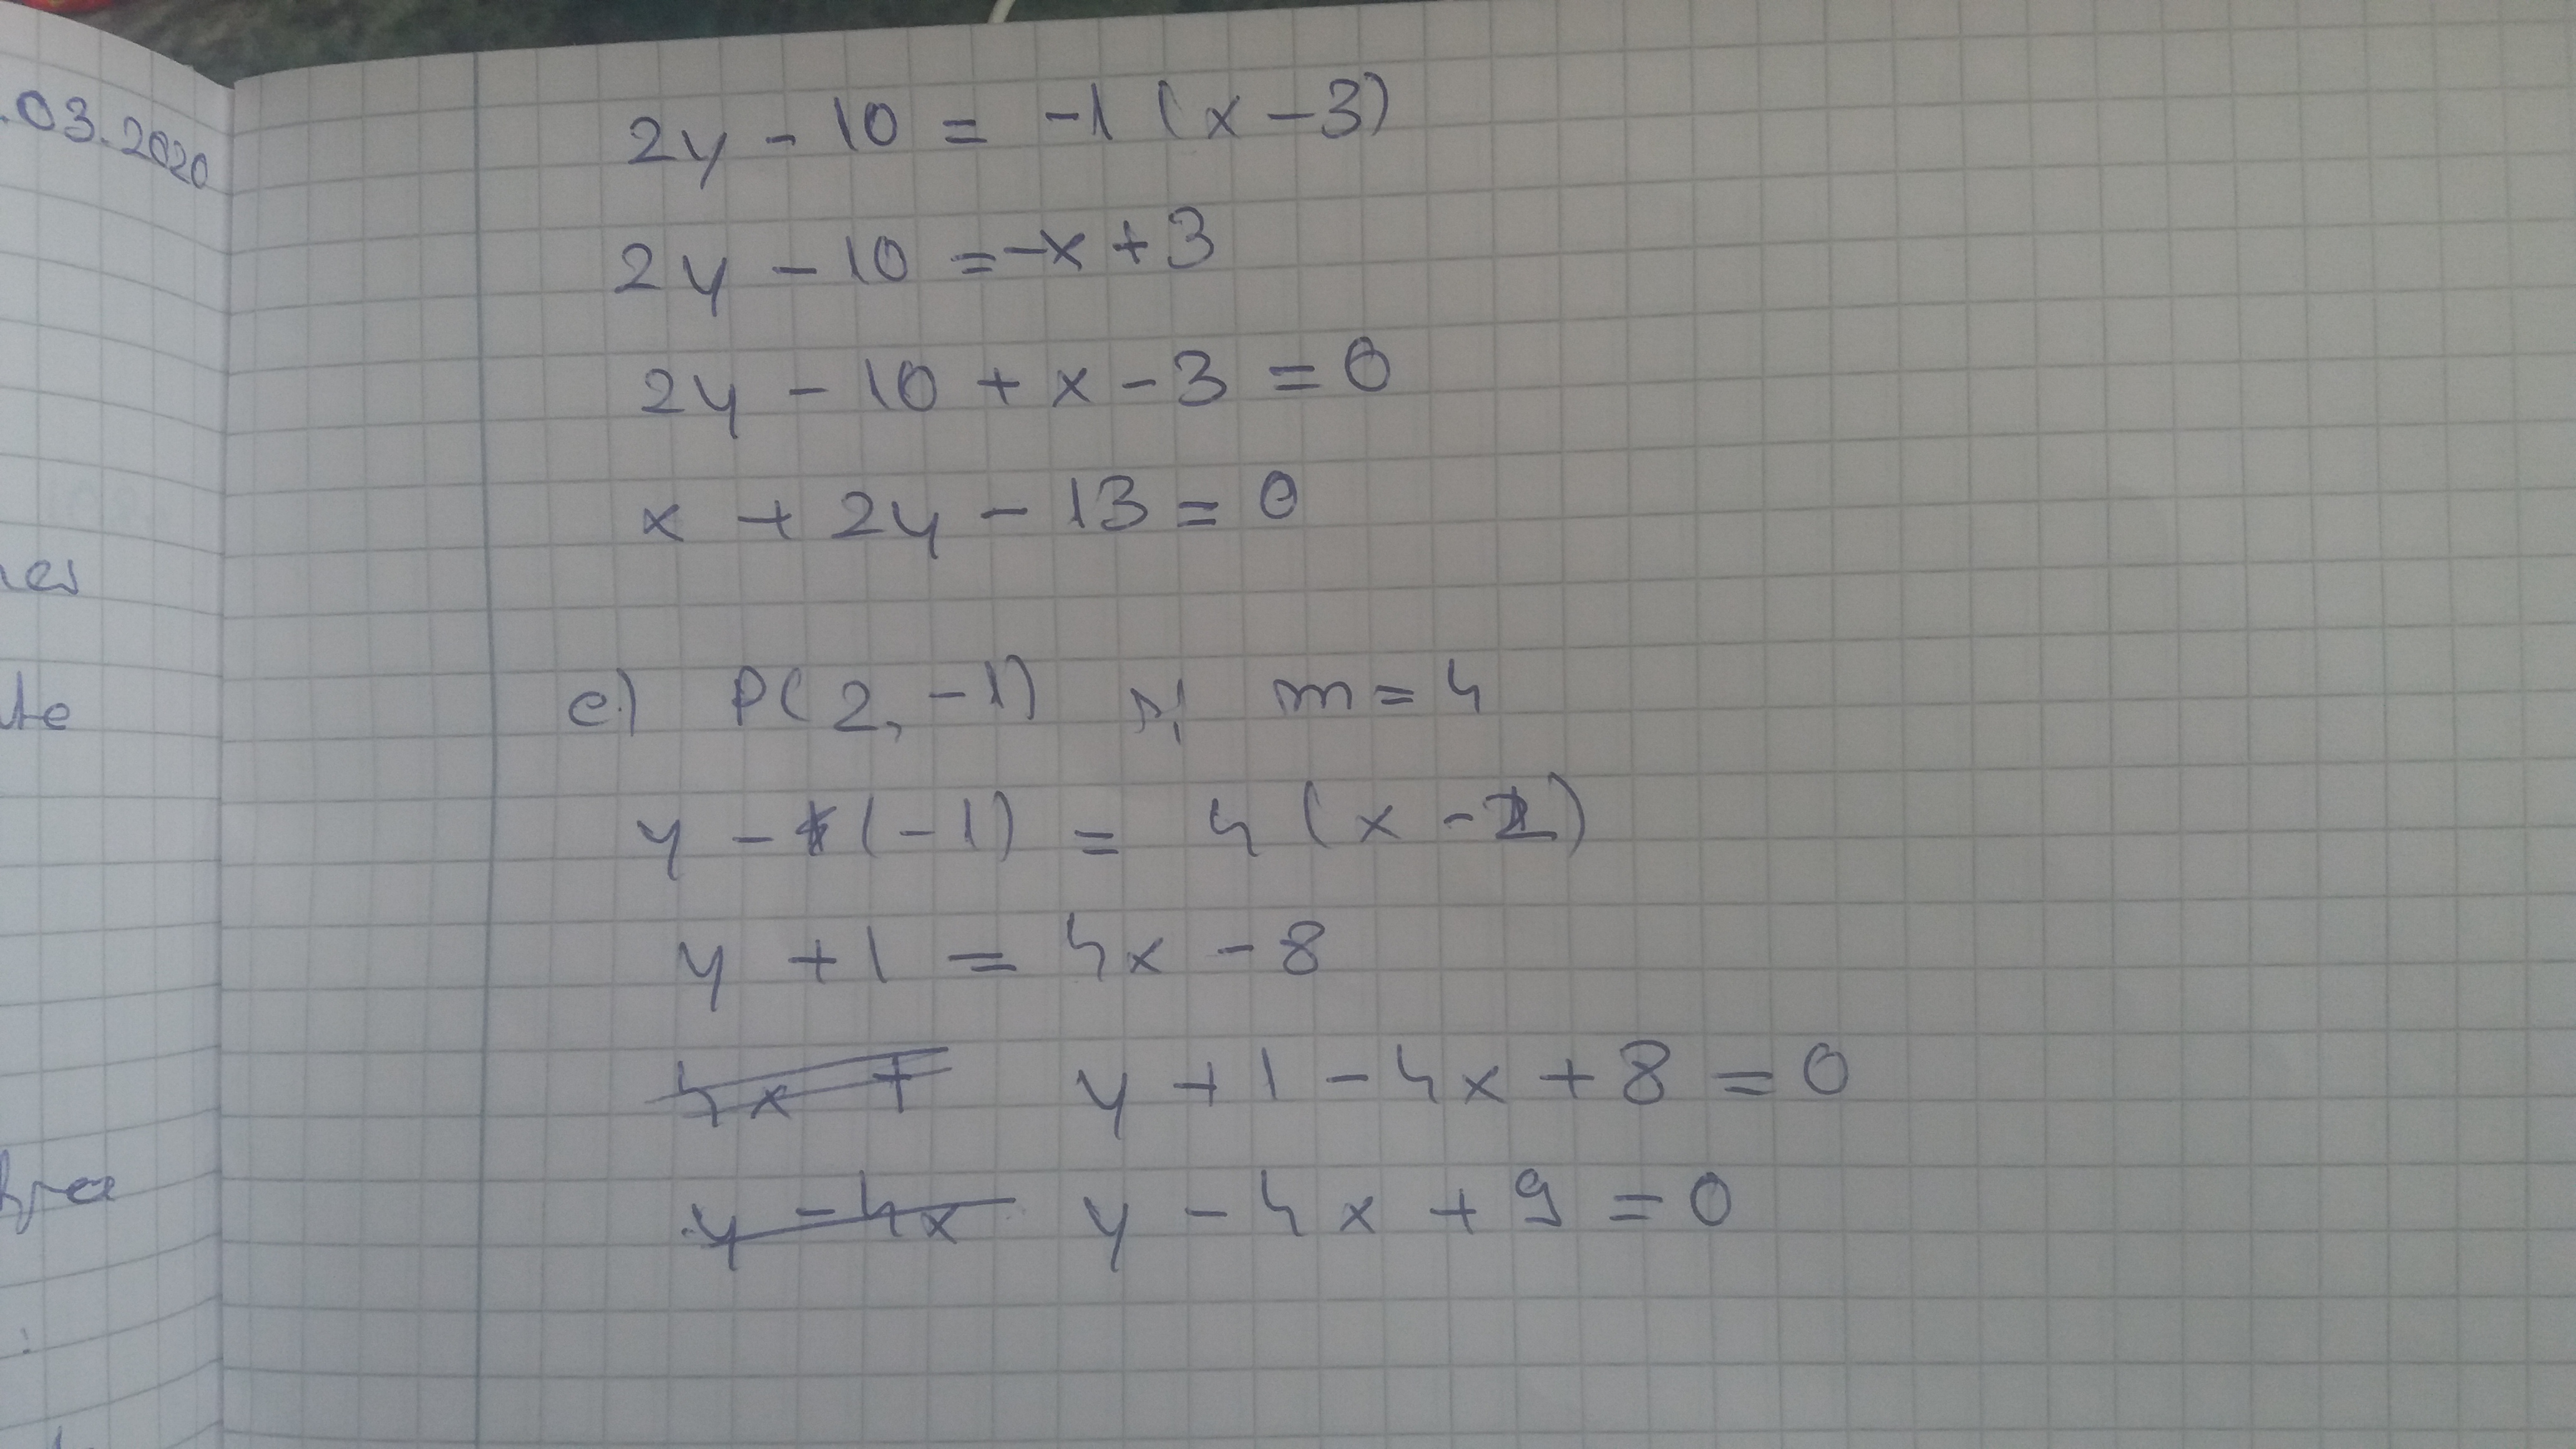 .03.2020
te
2y - 10 = -1 (x - 3)
2y - 10 = -x + 3
2y - 10 + x - 3 = 0
x + 2y - 13 = 0
c) P(2, -1) și m = 4
y - (-1) = 4 (x - 2)
y + 1 = 4x - 8
4x + y + 1 - 4x + 8 = 0
y - 4x y - 4x + 9 = 0